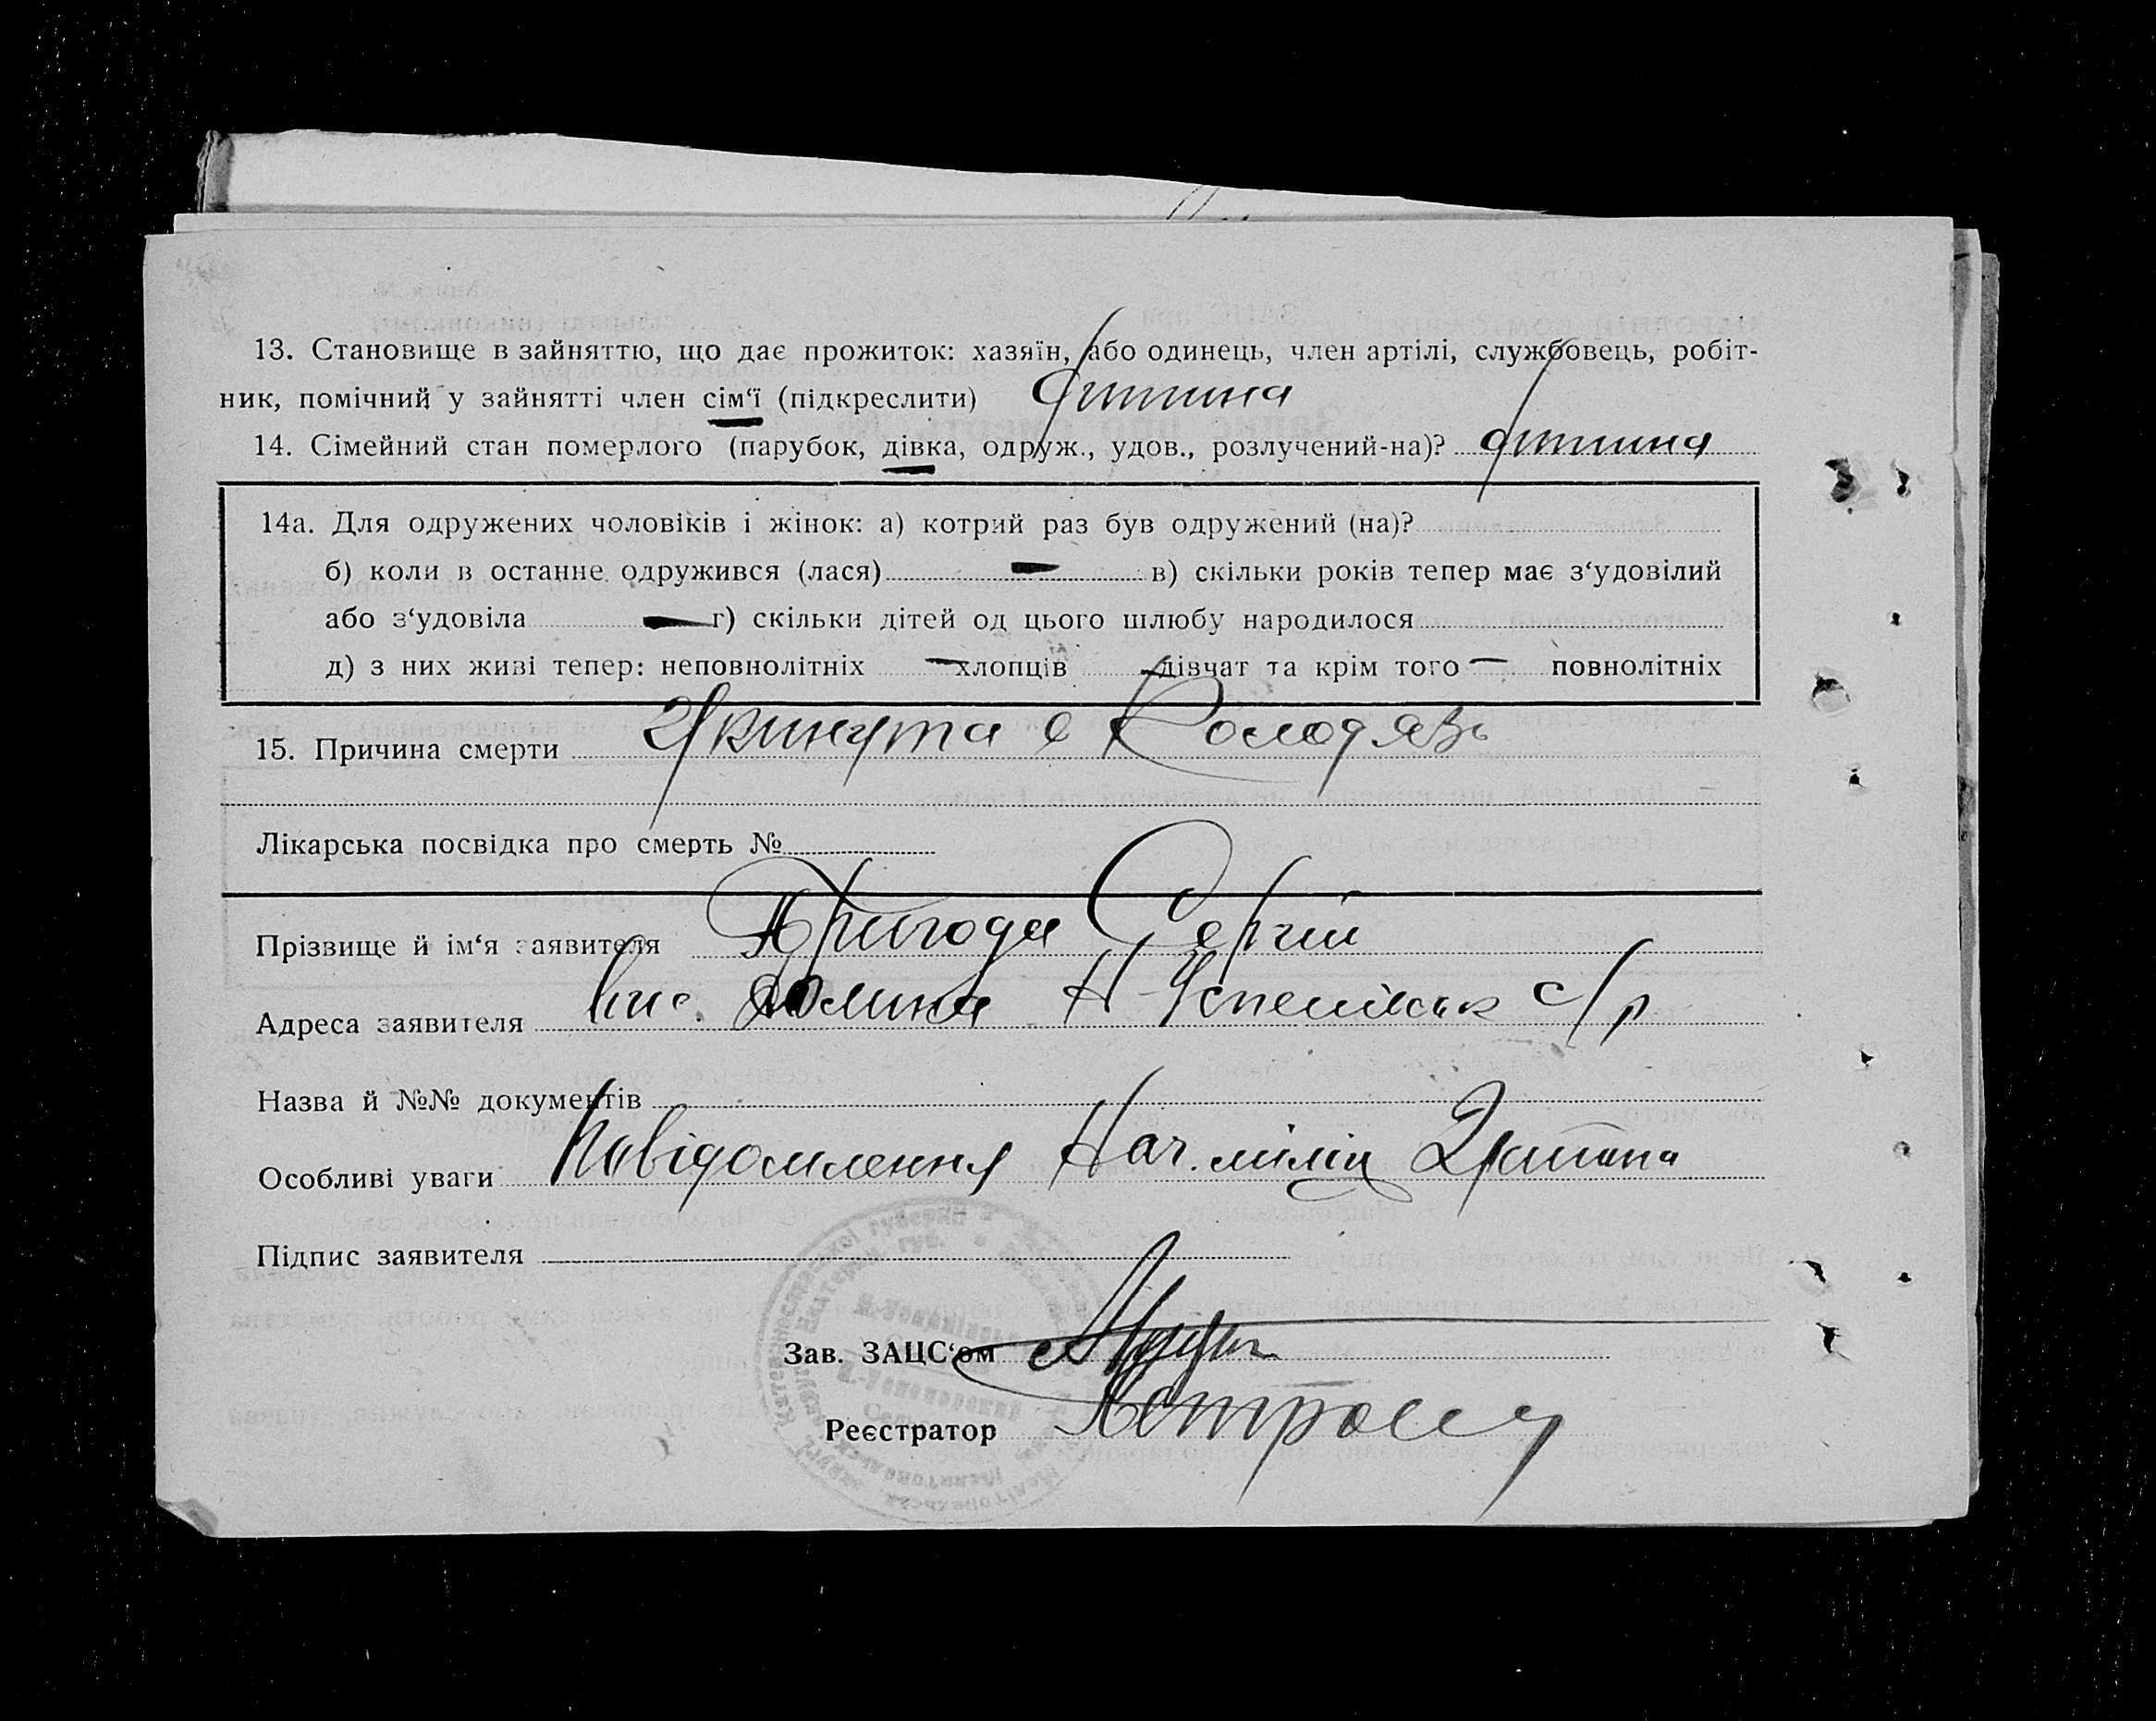 13. Становище в зайняттю, що дає прожиток: хазяїн, або одинець, член артілі, службовець, робіт-
ник, помічний у зайнятті член сім‘ї (підкреслити) дитина
14. Сімейний стан померлого (парубок, дівка, одруж., удов., розлучений-на)? дитина
14а. Для одружених чоловіків і жінок: а) котрий раз був одружений (на)?
б) коли в останнє одружився (лася) — в) скільки років тепер має з‘удовілий
або з‘удовіла — г) скільки дітей од цього шлюбу народилося
д) з них живі тепер: неповнолітніх — хлопців — дівчат та крім того — повнолітніх
15. Причина смерти Укинута в Колодязь
Лікарська посвідка про смерть №
Прізвище й ім‘я заявителя Пригода Сергій
Адреса заявителя вис. Долина Н-Успенівськ с/р
Назва й №№ документів
Особливі уваги Повідомлення Нач. міліції
Підпис заявителя
Зав. ЗАЦС‘ом
Реєстратор